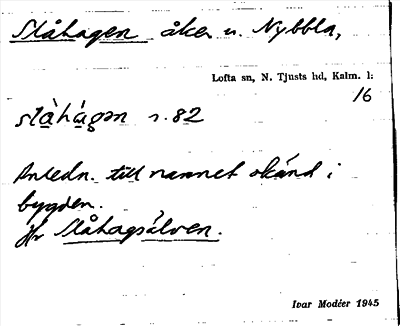 Slåhagen åker u. Nybbla,
Lofta sn, N. Tjusts hd, Kalm. l:
16
slàhágən s. 82
Anledn. till namnet okänd i
bygden.
jfr Slåhagsälven.
Ivar Modéer 1945